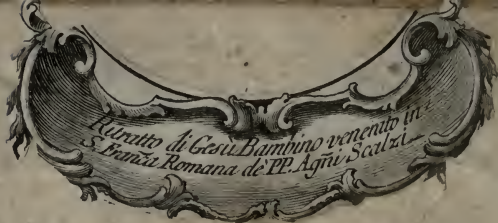 Ritratto di Gesù Bambino venerato in
S. Franca Romana de' PP. Agñi Scalzi